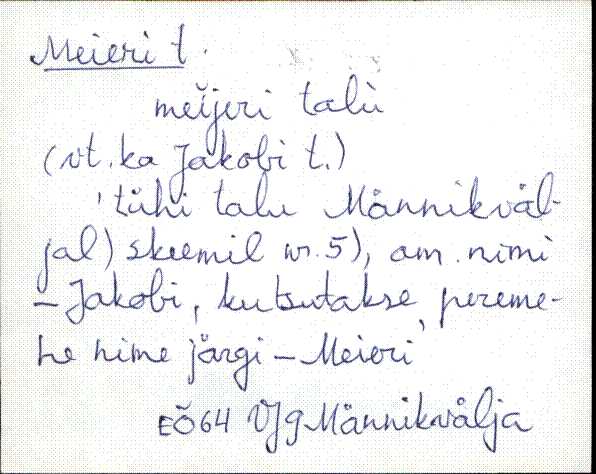 Meieri t.
meĭjeri talù
(vt. ka Jakobi t.)
'tühi talu Männikväl-
jal) skeemil nr. 5), am. nimi
– Jakobi, kutsutakse pereme-
he nime järgi – Meieri'
EÕ64 VJg Männikvälja